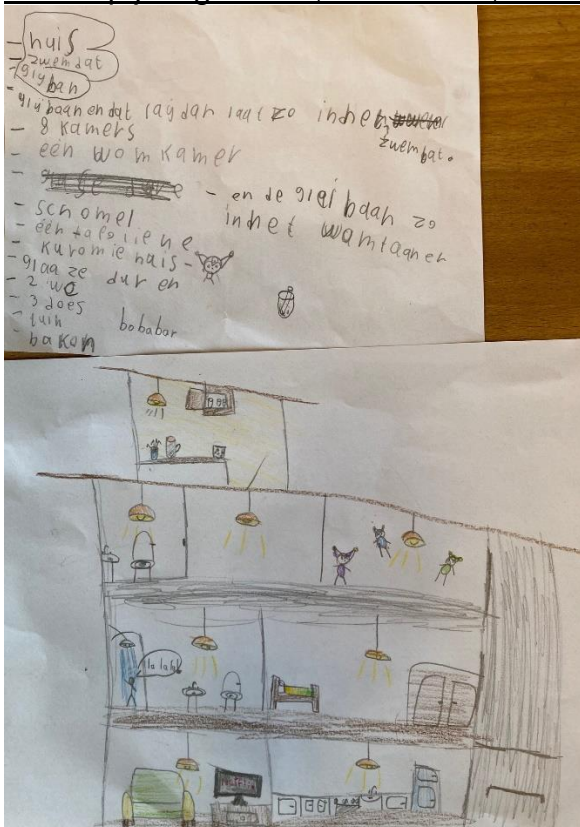 - huis
- zwemdat
- glij ban
- glij baan en dat
laat zo in het
zwembat.
- 8 kamers
- een womkamer
- en de glei baan zo
in het
- schomel
- één
- kuromie huis -
- glaaze duren
- 2 wc
- 3 does
- tuin
bobabar
- bakon
la la la